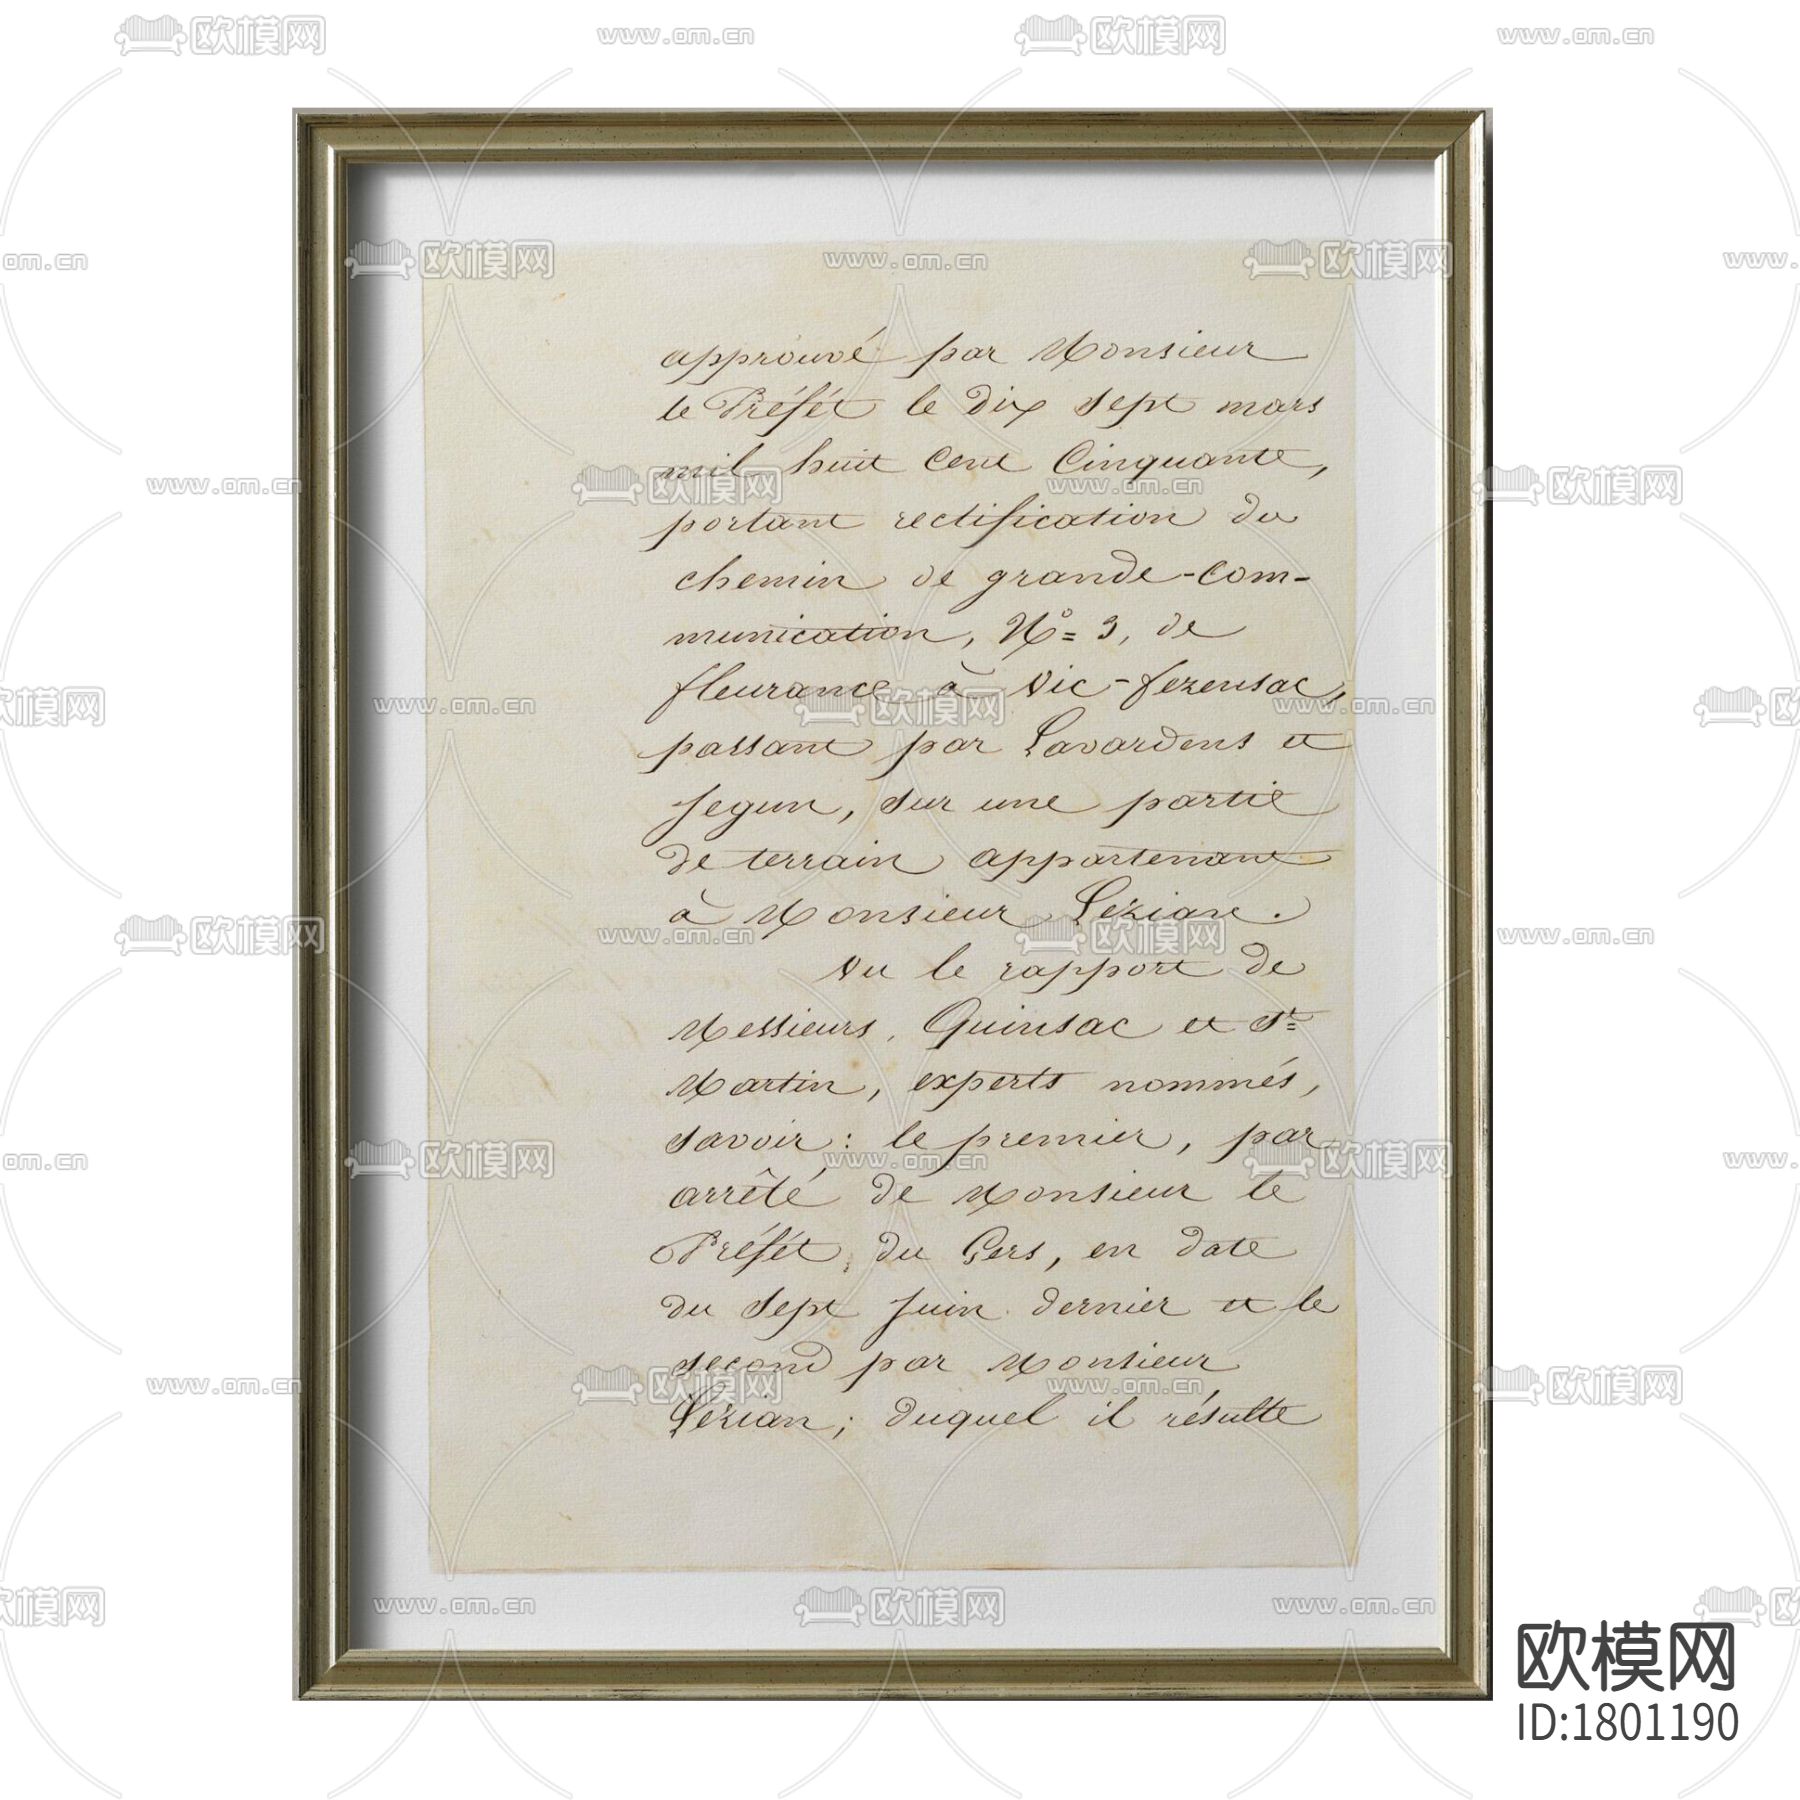 approuvé par Monsieur
le Préfét le dix sept mars
mil huit cent Cinquante,
portant rectification du
chemin de grande-com-
munication, Nº= 3, de
fleurance à Vic-fezensac,
passant par Lavardens et
Jegun, sur une partie
de terrain appartenant
à Monsieur Lézian.
Vu le rapport de
Messieurs, Quinsac et St=
Martin, experts nommés,
savoir: le premier, par
arrêté de Monsieur le
Préfét, du Gers, en date
du sept juin dernier et le
second par Monsieur
Lézian; duquel il résulte
欧模网
www.om.cn
欧模网
ID:1801190